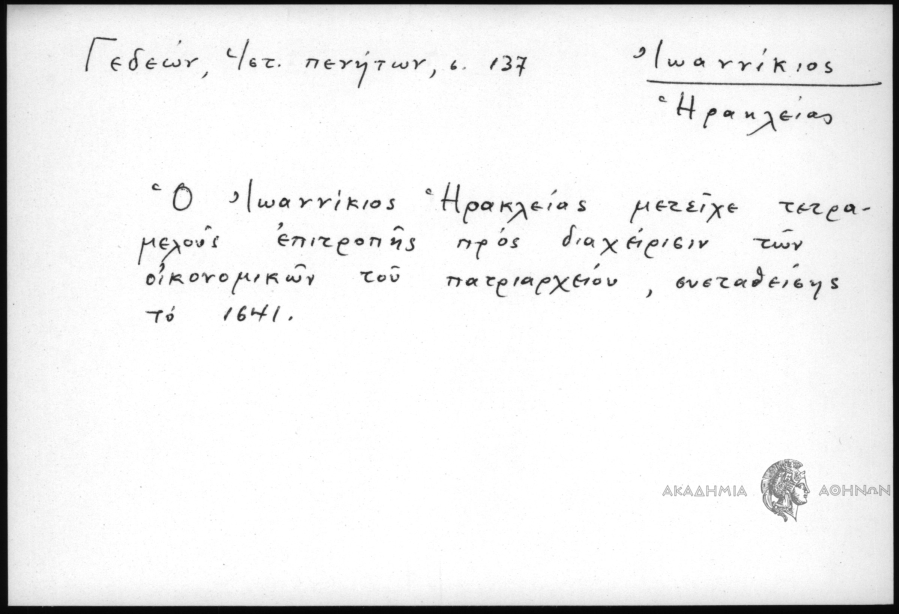 Γεδεών, Ἱστ. πενήτων, σ. 137
Ἰωαννίκιος
Ἡρακλείας
Ὁ Ἰωαννίκιος Ἡρακλείας μετεῖχε τετρα-
μελοῦς ἐπιτροπῆς πρός διαχείρισιν τῶν
οἰκονομικῶν τοῦ πατριαρχείου, συσταθείσης
τό 1641.
ΑΚΑΔΗΜΙΑ ΑΘΗΝΩΝ